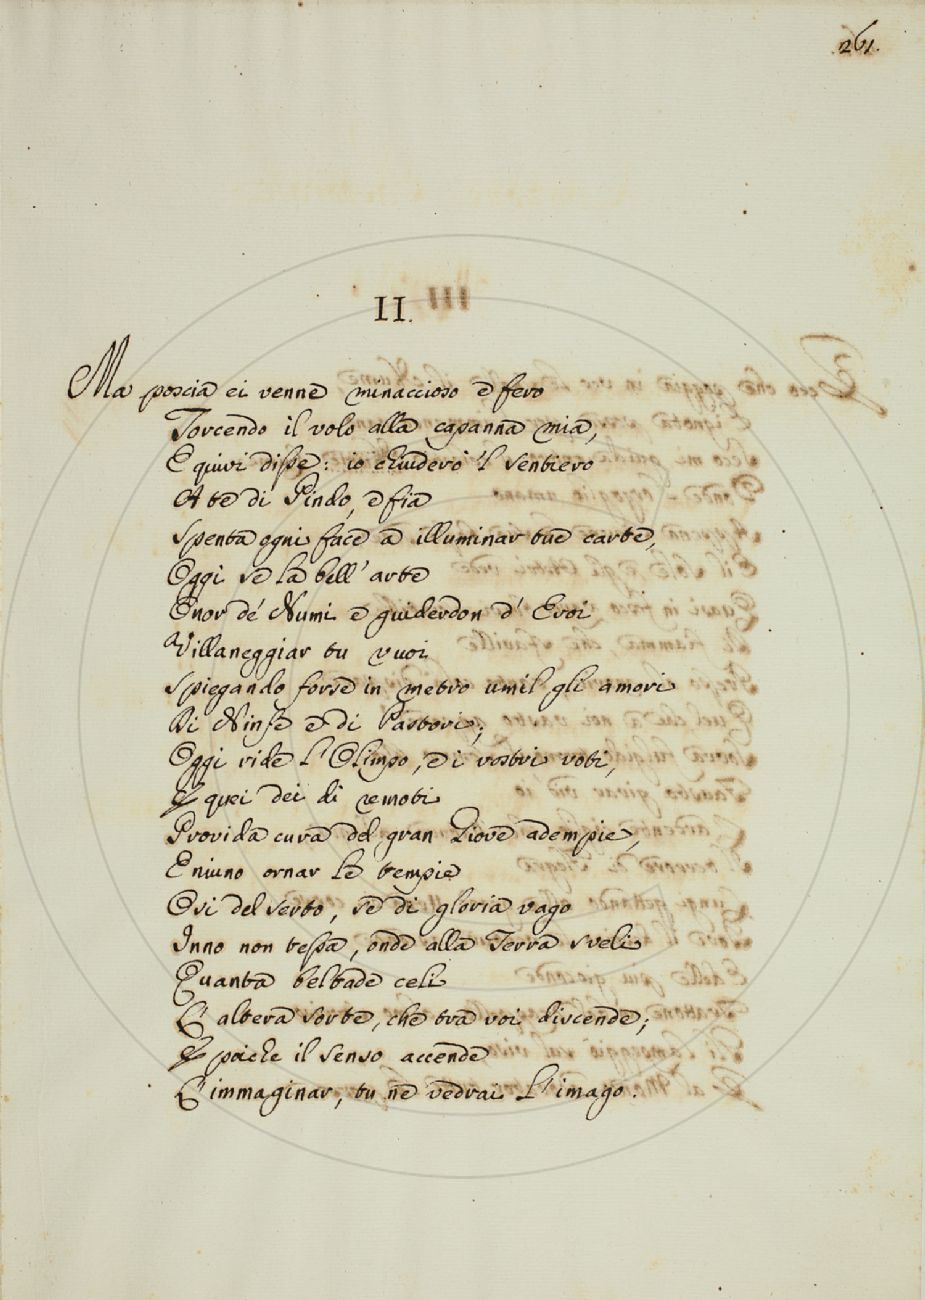 261.
II.
Ma poscia ei venne minaccioso e fero
Torcendo il volo alla capanna mia,
E quivi disse: io chiuderò 'l sentiero
A te di Pindo, e fia
Spenta ogni face a illuminar tue carte,
Oggi se la bell' arte
Onor de' Numi e guiderdon d' Eroi
Villaneggiar tu vuoi
Spiegando forse in metro umil gli amori
Di Ninfe e di Pastori;
Oggi ride l' Olimpo, e i vostri voti,
E quei dei dì remoti
Provida cura del gran Giove adempie,
E niuno ornar le tempie
Osi del serto, se di gloria vago
Inno non tessa, onde alla Terra sveli
Quanta beltade celi
L' altera sorte, che tra voi discende;
E poiche il senso accende
L' immaginar, tu ne vedrai l' imago.